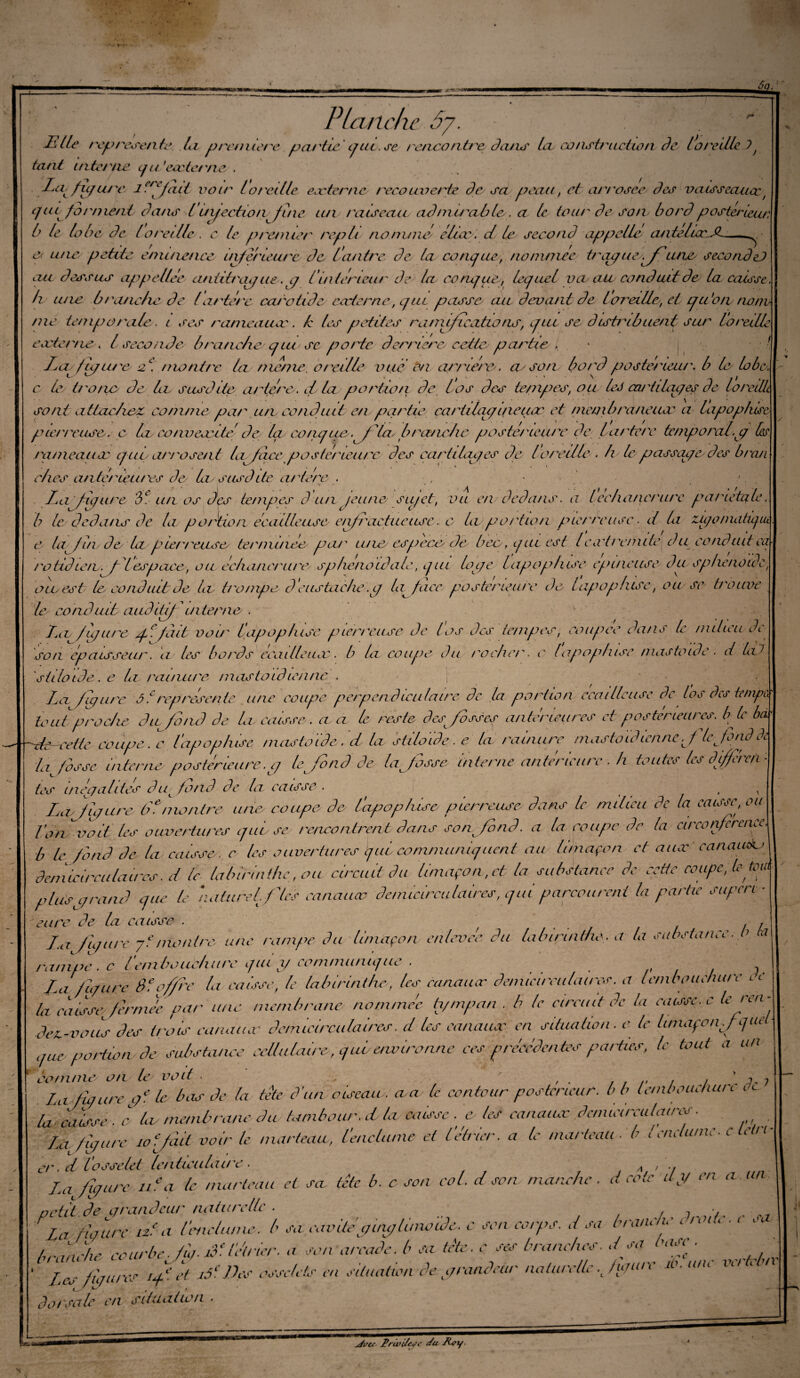 59.
Planche 57.
Elle représente la premiere partie qui se rencontre dans la construction de l'oreille,
tant interne qu'externe .
La figure 1ere fait voir l'oreille externe recouverte de sa peau, et arrosée des vaisseaux,
qui forment dans l'injection fine un raiseau admirable . a le tour de son bord postérieur.
b le lobe de l'oreille . c le premier repli nommé élix. d le second appellé antélix.
e une petite éminence inférieure de l'antre de la conque, nommée trague . f une seconde
au dessus appellée antitrague . g l'intérieur de la conque, lequel va au conduit de la caisse.
h une branche de l'artère carotide externe, qui passe au devant de l'oreille, et qu'on nom-
me temporale . i ses rameaux . k les petites ramifications, qui se distribuent sur l'oreille
externe . l seconde branche qui se porte derrière cette partie .
La figure 2e. montre la même oreille vuë en arrière . a son bord postérieur. b le lobe.
c le tronc de la susdite artère . d la portion de l'os des tempes, ou les cartilages de l'oreille
sont attachez comme par un conduit en partie cartilagineux et membraneux a l'apophise
pierreuse . e la convexité de la conque . f la branche postérieure de l'artère temporal . g les
rameaux qui arrosent la face postérieure des cartilages de l'oreille . h le passage des bran
ches antérieures de la susdite artère .
La figure 3e un os des tempes d'un jeune sujet, vû en dedans. a l'échancrure pariétale.
b le dedans de la portion écailleuse enfractueuse . c la portion pierreuse . d la zigomatique
e la fin de la pierreuse terminée par une espèce de bec, qui est l'extrémité du conduit ca
rotidien . f l'espace, ou échancrure sphénoïdale, qui loge l'apophise épineuse du sphénoïde,
ou est le conduit de la trompe d'eustache . g la face postérieure de l'apophise, ou se trouve
le conduit auditif interne .
La figure 4e fait voir l'apophise pierreuse de l'os des tempes, coupée dans le milieu de
son épaisseur. a les bords écailleux . b la coupe du rocher . c l'apophise mastoïde . d la
stiloïde . e la rainure mastoïdienne .
La figure 5e représente une coupe perpendiculaire de la portion écailleuse de l'os des tempes
tout proche du fond de la caisse . a a le reste des fosses antérieures et postérieures. b le bas
de cette coupe . c l'apophise mastoïde . d la stiloïde . e la rainure mastoïdienne . f le fond de
la fosse interne postérieure . g le fond de la fosse interne antérieure . h toutes les différen-
tes inégalités du fond de la caisse .
La figure 6e montre une coupe de l'apophise pierreuse dans le milieu de la caisse, ou
l'on voit les ouvertures qui se rencontrent dans son fond. a la coupe de la circonférence.
b le fond de la caisse . c les ouvertures qui communiquent au limaçon et aux canaux
demicirculaires . d le labirinthe, ou circuit du limaçon, et la substance de cette coupe, le tout
plus grand que le naturel . f les canaux demicirculaires, qui parcourent la partie supéri-
eure de la caisse .
La figure 7e montre une rampe du limaçon enlevée du labirinthe . a la substance . b la
rampe . c l'embouchure qui y communique .
La figure 8e offre la caisse, le labirinthe, les canaux demicirculaires . a l'embouchure de
la caisse fermée par une membrane nommée tympan . b le circuit de la caisse . c le ren-
dez-vous des trois canaux demicirculaires . d les canaux en situation . e le limaçon . f quel-
que portion de substance cellulaire, qui environne ces précédentes parties, le tout a un
comme on le voit .
La figure 9e le bas de la tête d'un oiseau . a a le contour postérieur. b b l'embouchure de
la caisse . c la membrane du tambour . d la caisse . e les canaux demicirculaires .
La figure 10e fait voir le marteau, l'enclume et l'étrier. a le marteau . b l'enclume . c l'étri-
er. d l'osselet lenticulaire .
La figure 11e a le marteau et sa tête b. c son col. d son manche . d coté il y en a un
petit de grandeur naturelle .
La figure 12e a l'enclume . b sa cavité ginglimoïde . c son corps . d sa branche droite . e sa
branche courbe . fig. 13e l'étrier. a son arcade . b sa tête . c ses branches . d sa base .
Les figures 14e et 15e Des osselets en situation de grandeur naturelle . figure 16e une vertebre
dorsale en situation .
Avec Privilege du Roy.